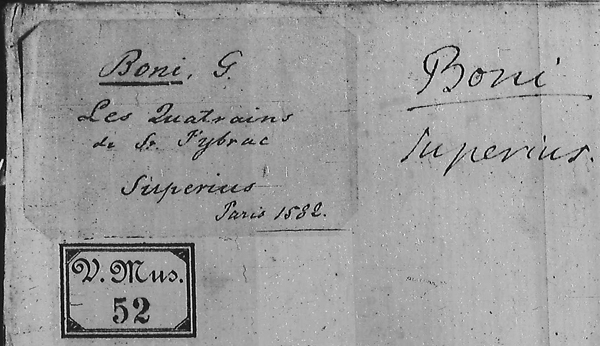 Boni, G.
Les Quatrains
de Sr. Pybrac
Superius
Paris 1582.
V. Mus.
52
Boni
Superius.